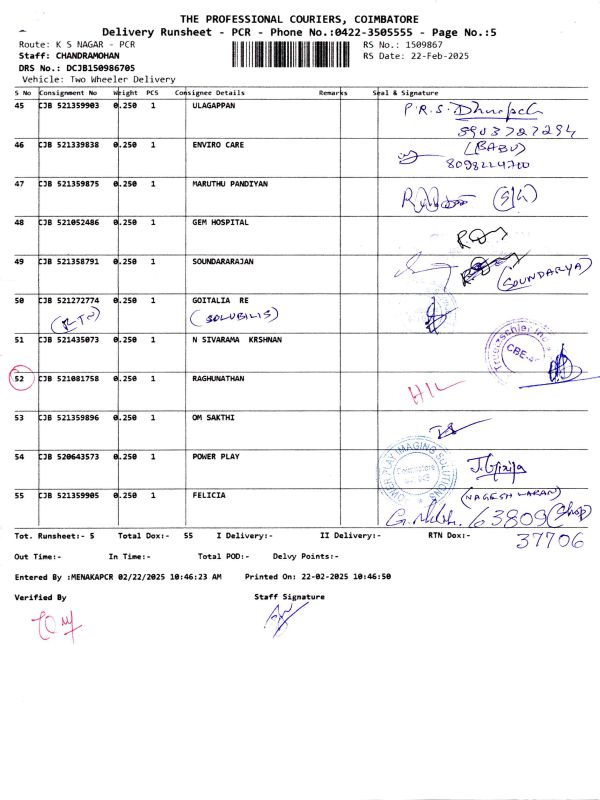 THE PROFESSIONAL COURIERS, COIMBATORE
Delivery Runsheet - PCR - Phone No.:0422-3505555 - Page No.:5
Route: K S NAGAR - PCR RS No.: 1509867
Staff: CHANDRAMOHAN RS Date: 22-Feb-2025
DRS No.: DCJB150986705
Vehicle: Two Wheeler Delivery
S No Consignment No Weight PCS Consignee Details Remarks Seal & Signature
45 CJB 521359903 0.250 1 ULAGAPPAN P.R.S.
46 CJB 521339838 0.250 1 ENVIRO CARE (BABU)
8098224700
47 CJB 521359875 0.250 1 MARUTHU PANDIYAN
48 CJB 521052486 0.250 1 GEM HOSPITAL
49 CJB 521358791 0.250 1 SOUNDARARAJAN (SOUNDARYA)
50 CJB 521272774 0.250 1 GOITALIA RE
(RTN) (SOLUBILIS)
51 CJB 521435073 0.250 1 N SIVARAMA KRSHNAN
CBE-
52 CJB 521081758 0.250 1 RAGHUNATHAN
53 CJB 521359896 0.250 1 OM SAKTHI
54 CJB 520643573 0.250 1 POWER PLAY POWER PLAY IMAGING SOLUTIONS
Coimbatore
55 CJB 521359905 0.250 1 FELICIA
63809 (Shop)
37706
Tot. Runsheet:- 5 Total Dox:- 55 I Delivery:- II Delivery:- RTN Dox:-
Out Time:- In Time:- Total POD:- Delvy Points:-
Entered By :MENAKAPCR 02/22/2025 10:46:23 AM Printed On: 22-02-2025 10:46:50
Verified By Staff Signature